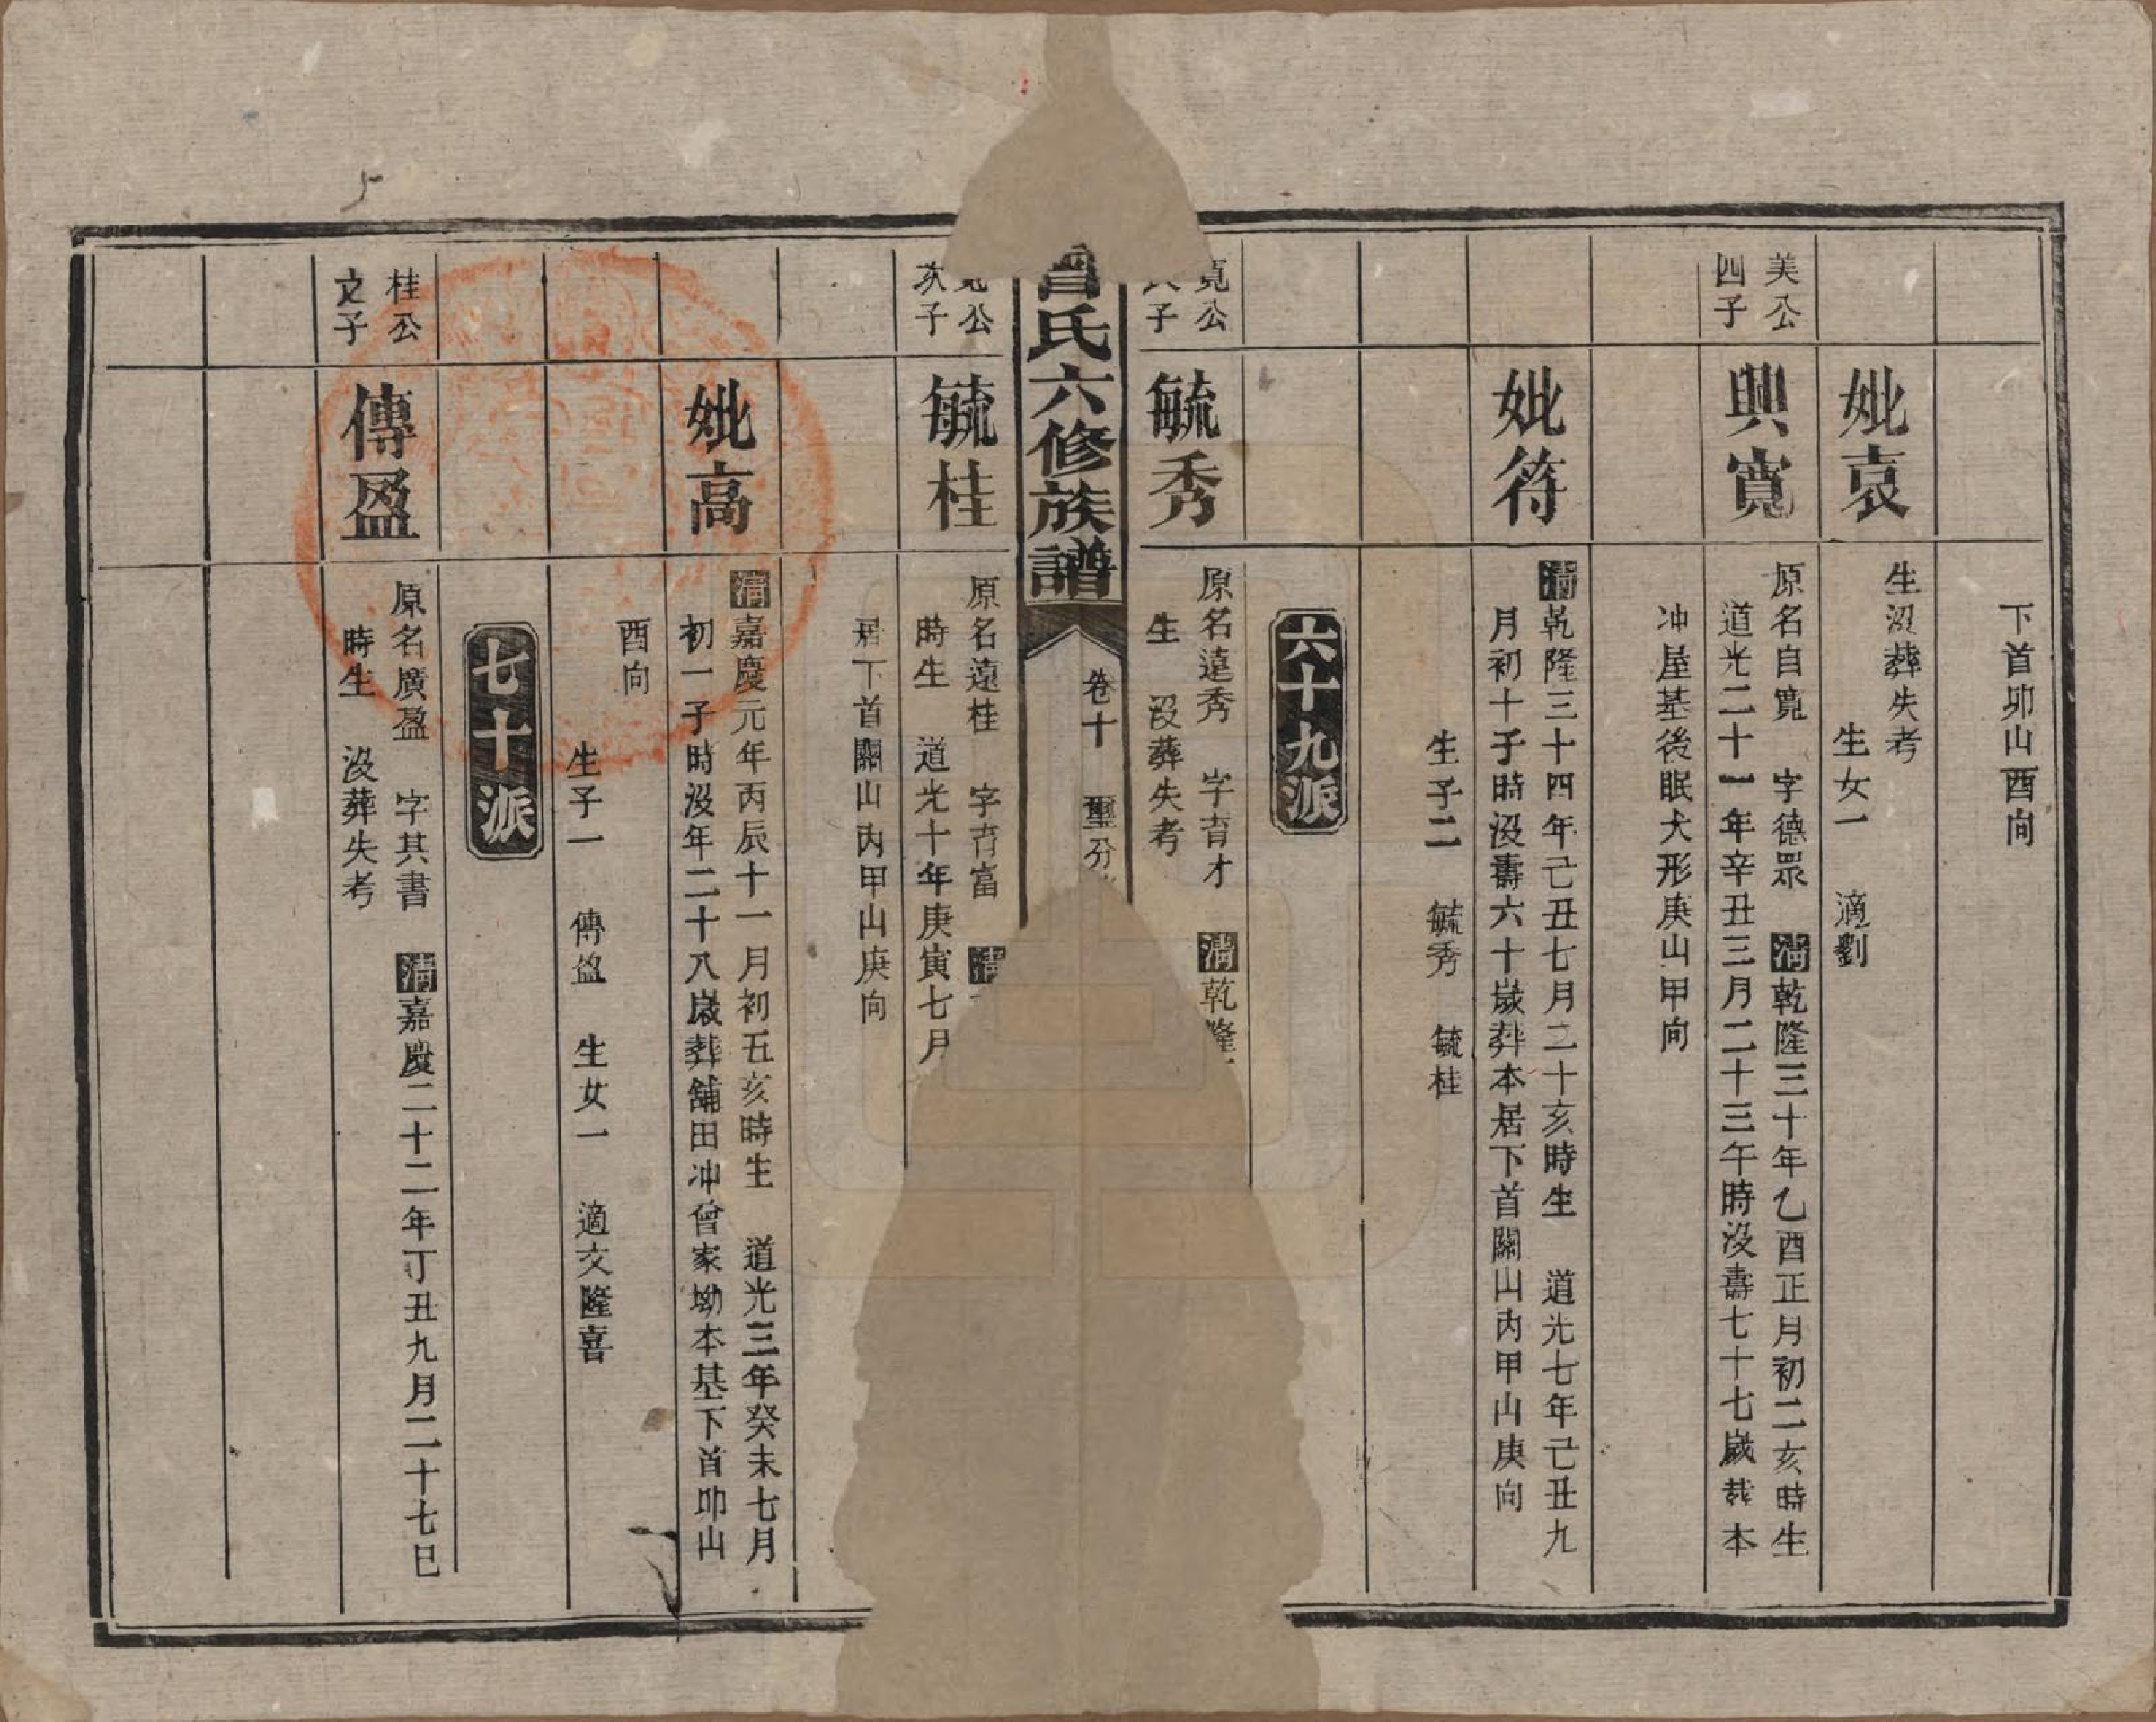 下首卯山酉向
妣袁
生沒葬失考
生女一　適劉
美公
四子
興寬
原名自寬　字德眾　清乾隆三十年乙酉正月初二亥時生
道光二十一年辛丑三月二十三午時沒壽七十七歲葬本
冲屋基後眠犬形庚山甲向
妣符
清乾隆三十四年己丑七月二十亥時生　道光七年己丑九
月初十子時沒壽六十歲葬本居下首關山內甲山庚向
生子二　毓秀　毓桂
六十九派
寬公
子
毓秀
原名遠秀　字育才　清乾隆
生　沒葬失考
曾氏六修族譜
卷十
公
次子
毓桂
原名遠桂　字育富　清
時生　道光十年庚寅七月
居下首關山內甲山庚向
妣高
清嘉慶元年丙辰十一月初五亥時生　道光三年癸未七月
初一子時沒年二十八歲葬舖田冲曾家坳本基下首卯山
酉向
生子一　傳盈　生女一　適文隆喜
七十派
桂公
之子
傳盈
原名廣盈　字其書　清嘉慶二十二年丁丑九月二十七巳
時生　沒葬失考